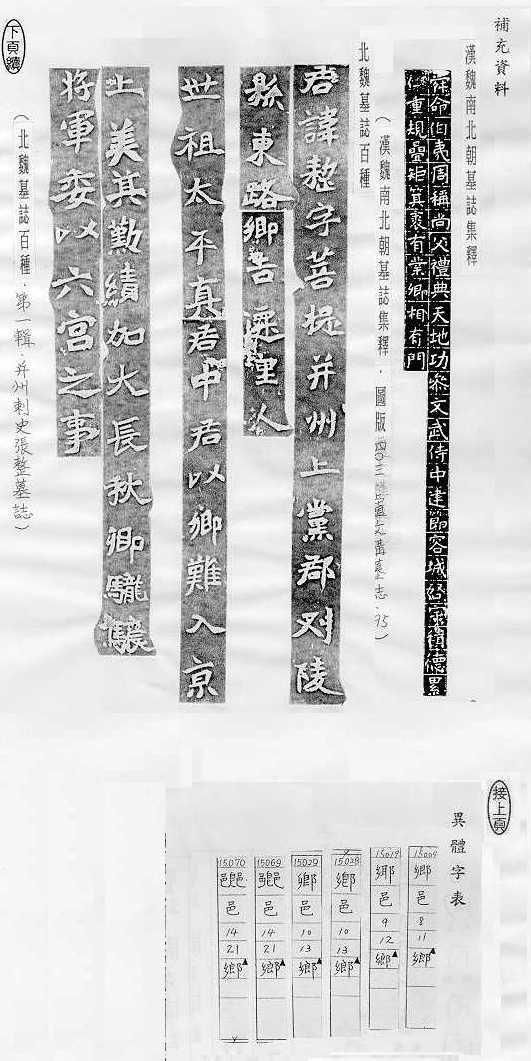 補充資料
漢魏南北朝墓誌集釋
命伯夷周稱尚父禮典天地功參文武侍中建節容城啓胤積德累
仁重規疊矩箕裘有業卿相有門
(漢魏南北朝墓誌集釋.圖版四〇三
北魏墓誌百種
君諱整字菩提并州上黨郡刈陵
縣東路鄉吉遷里人
世祖太平真君中君以鄉難入京
上美其勤績加大長秋卿驪驤
將軍委以六宮之事
(北魏墓誌百種.第一輯.并州刺史張整墓誌)
下頁續
接上頁
異體字表
15004 鄉 邑 8 11 鄉▲
15019 鄉 邑 9 12 鄉▲
15028 鄉 邑 10 13 鄉▲
15029 鄉 邑 10 13 鄉▲
15069 邑 14 21 鄉▲
15070 邑 14 21 鄉▲